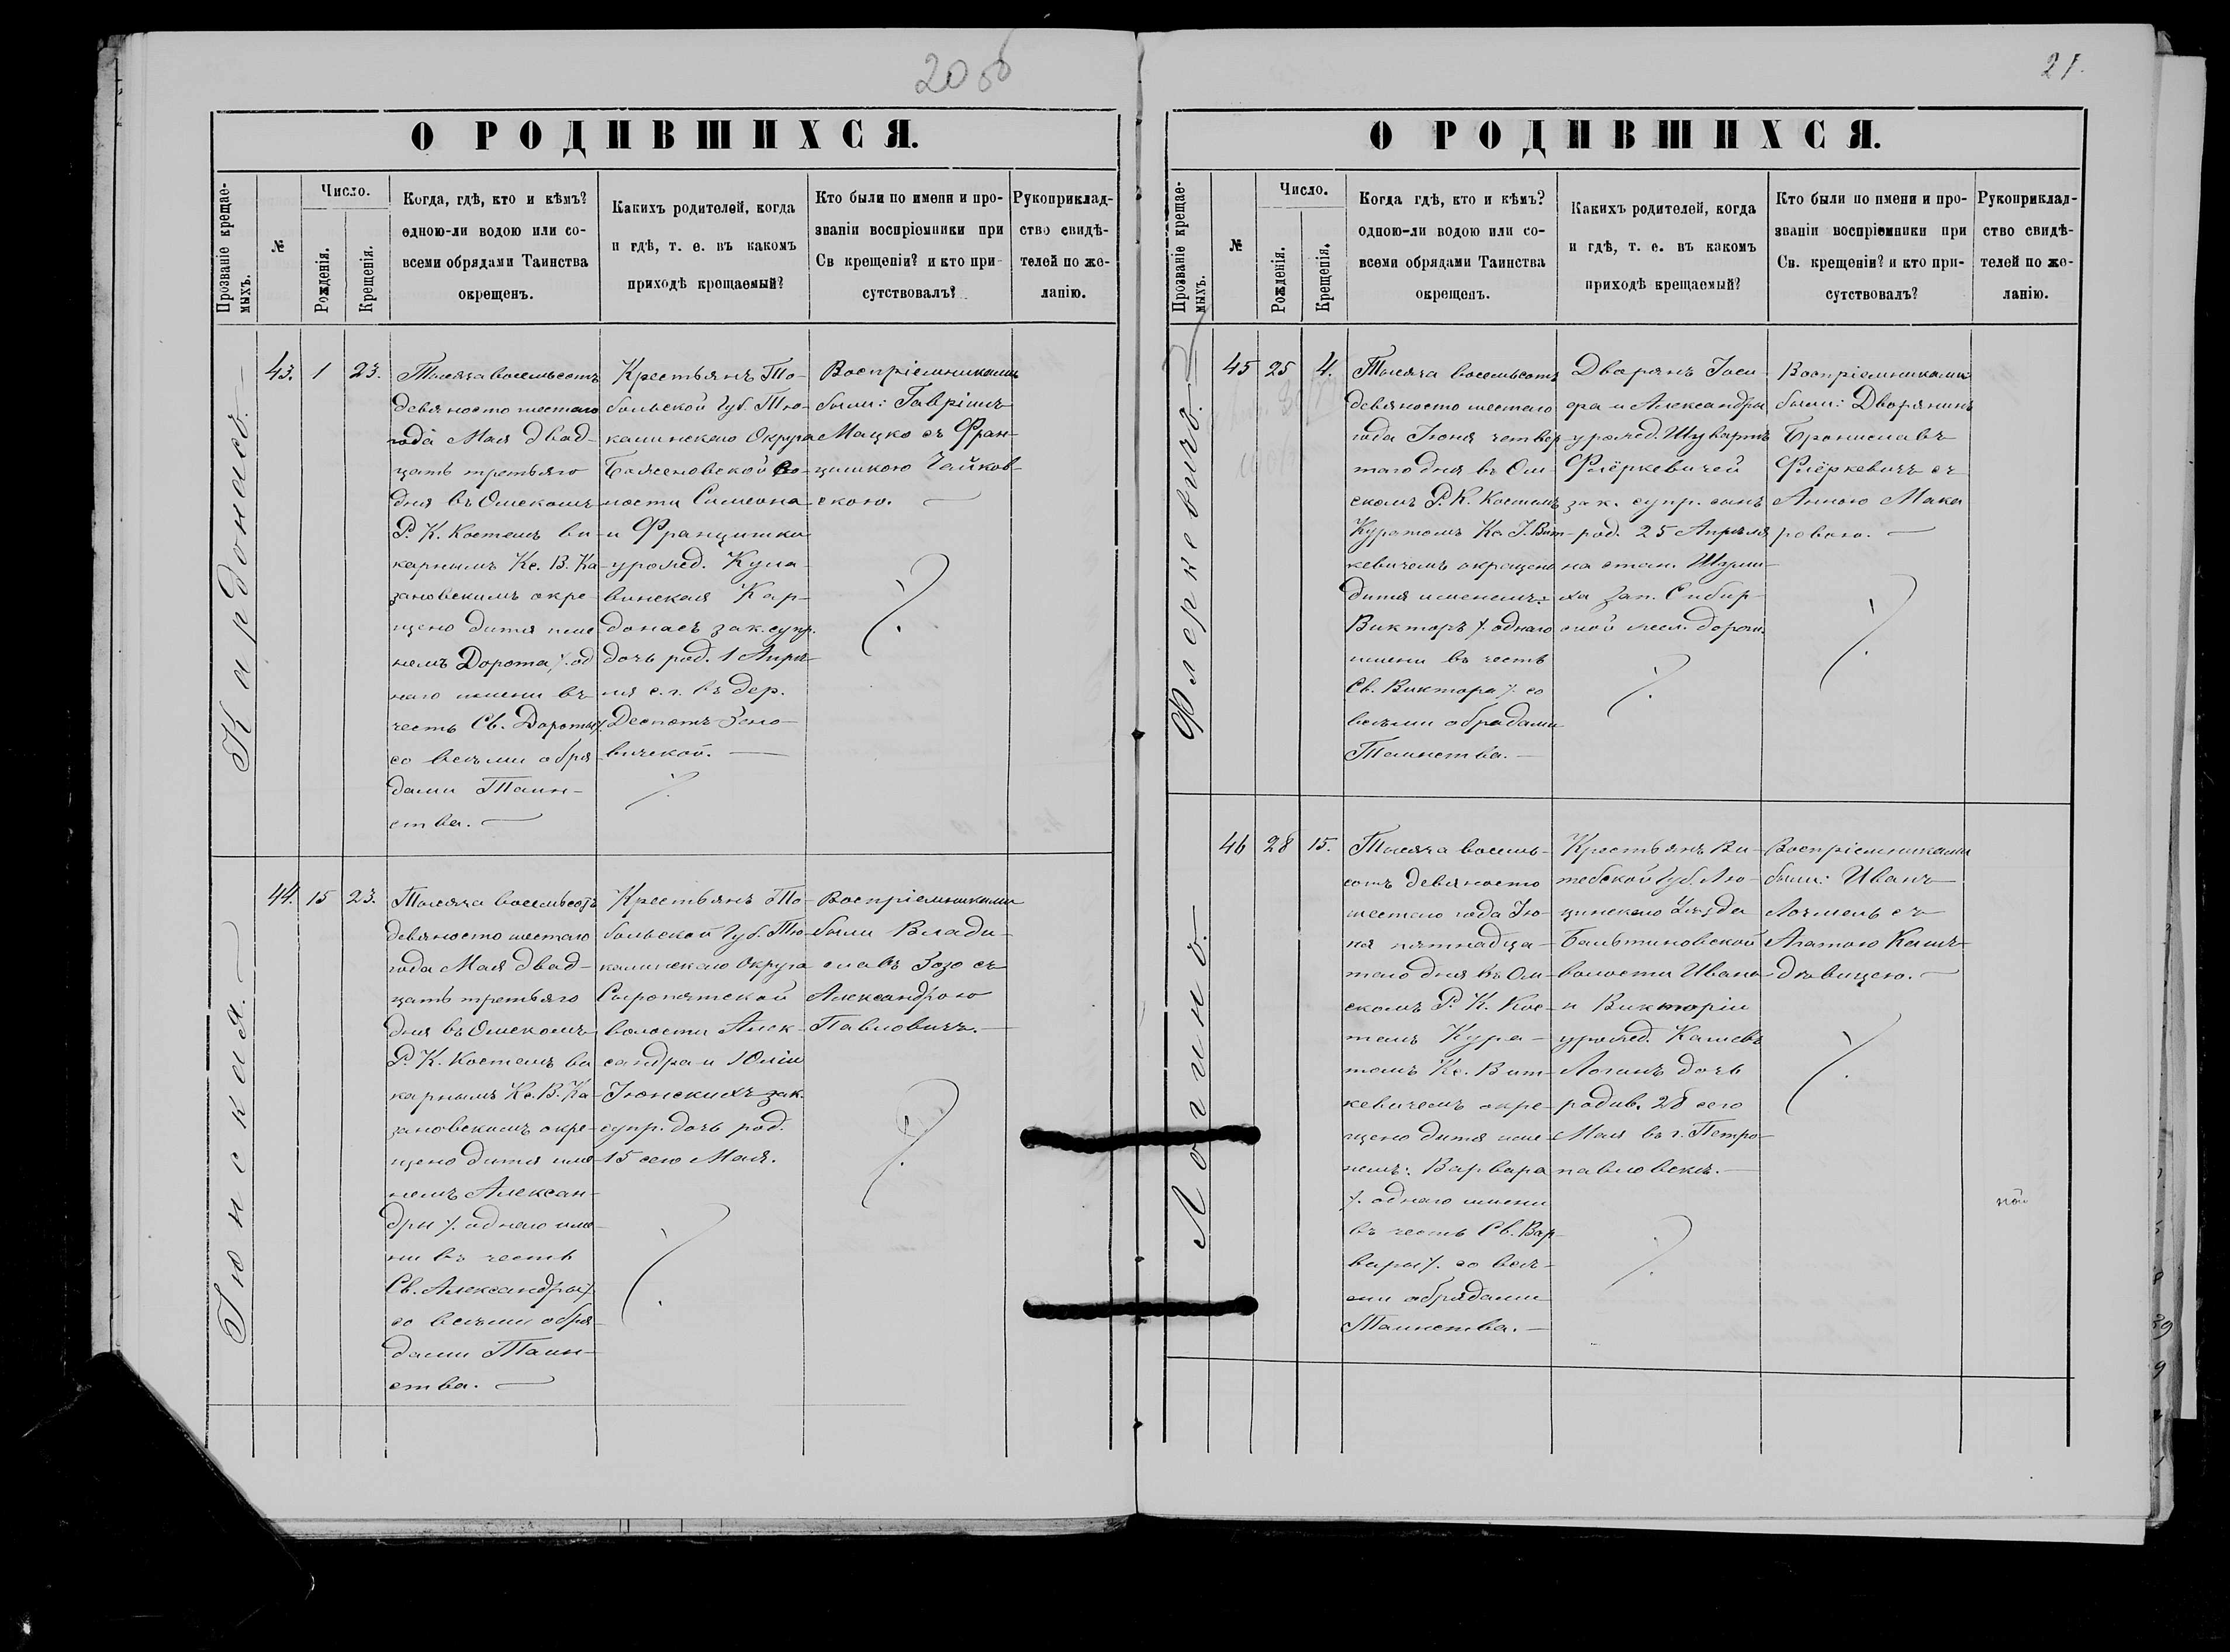 20 об
О РОДИВШИХСЯ.
Прозваніе крещае-
мыхъ.
№
Число.
Рожденія.
Крещенія.
Когда, гдѣ, кто и кѣмъ?
одною-ли водою или со-
всеми обрядами Таинства
окрещенъ.
Какихъ родителей, когда
и гдѣ, т. е. въ какомъ
приходѣ крещаемый?
Кто были по имени и про-
званіи воспріемники при
Св крещеніи? и кто при-
сутствовалъ?
Рукоприклад-
ство свидѣ-
телей по же-
ланію.
Кардонасъ.
43.
1
23.
Тысяча восемьсотъ
девяносто шестаго
года Мая двад-
цать третьяго
дня въ Омскомъ
Р. К. Костелѣ ви-
карнымъ Кс. В. Ка-
зановскимъ окре-
щено дитя име-
немъ Дорота, ⁒ од
наго имени въ
честь Св. Дороты ⁒
со всѣми обря-
дами Таин-
ства.
Крестьянъ То-
больской Губ. Тю-
калинскаго Округа
Баженовской во-
лости Симеона
и Францишки
урожд. Кула-
винская Кар-
донасъ зак. супр.
дочь род. 1 Апрѣ-
ля с. г. въ дер.
Деспотъ-Зено-
вичской.
Воспріемниками
были: Гавріилъ
Мацко съ Фран-
цишкою Чайков-
скою.
Іюнская.
44.
15
23.
Тысяча восемьсотъ
девяносто шестаго
года Мая двад-
цать третьяго
дня въ Омскомъ
Р. К. Костелѣ ви
карнымъ Кс. В. Ка-
зановскимъ окре-
щено дитя име-
немъ Алексан-
дры ⁒ однаго име-
ни въ честь
Св. Александры ⁒
со всѣми обря-
дами Таин-
ства.
Крестьянъ То-
больской Губ. Тю-
калинскаго Округа
Сыропятской
волости Алек-
сандра и Юліи
Іюнскихъ зак.
супр. дочь род.
15 сего Мая.
Воспріемниками
были Влади-
славъ Зозо съ
Александрою
Павловичъ.
21.
О РОДИВШИХСЯ.
Прозваніе крещае-
мыхъ.
№
Число.
Рожденія.
Крещенія.
Когда гдѣ, кто и кѣмъ?
одною-ли водою или со-
всеми обрядами Таинства
окрещенъ.
Какихъ родителей, когда
и гдѣ, т. е. въ какомъ
приходѣ крещаемый?
Кто были по имени и про-
званіи воспріемники при
Св. крещеніи? и кто при-
сутствовалъ?
Рукоприклад-
ство свидѣ-
телей по же-
ланію.
Флеркевичъ.
45
25
4.
Тысяча восемьсотъ
девяносто шестаго
года Іюня четвер-
таго дня въ Ом-
скомъ Р. К. Костелѣ
Куратомъ Кс. І. Вит-
кевичемъ окрещено
дитя именемъ:
Викторъ ⁒ однаго
имени въ честь
Св. Виктора ⁒ со
всѣми обрядами
Таинства.
Дворянъ Іоси-
фа и Александры
урожд. Шувартъ
Флёркевичей
зак. супр. сынъ
род. 25 Апрѣля
на стан. Шуми-
ха Зап. Сибир-
ской жел. дороги.
Воспріемниками
были: Дворянинъ
Брониславъ
Флёркевичъ съ
Анною Мака
ровою.
Логинъ.
46
28
15.
Тысяча восемь-
сотъ девяносто
шестаго года Ію-
ня пятнадца-
таго дня въ Ом-
скомъ Р. К. Кос-
телѣ Кура-
томъ Кс. Вит-
кевичемъ окре-
щено дитя име-
немъ: Варвара
⁒ однаго имени
въ честь Св. Вар-
вары ⁒ со всѣ-
ми обрядами
Таинства.
Крестьянъ Ви-
тебской Губ. Лю-
цинскаго Уѣзда
Бальтиновской
волости Ивана
и Викторіи
урожд. Кашевъ
Логинъ дочь
родив. 28 сего
Мая въ г. Петро-
павловскѣ.
Воспріемниками
были: Иванъ
Лочмель съ
Агатою
дѣвицею.